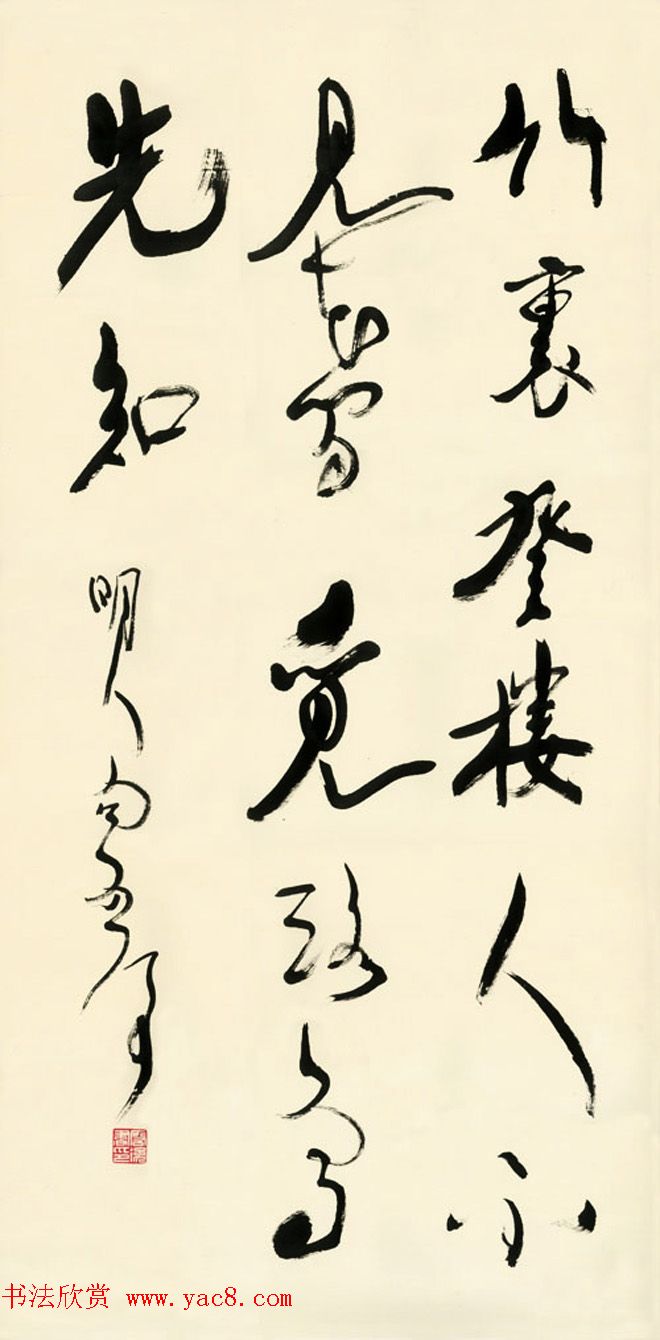 竹裏登樓人不
見花間覓路鳥
先知
明人句
书法欣赏 www.yac8.com